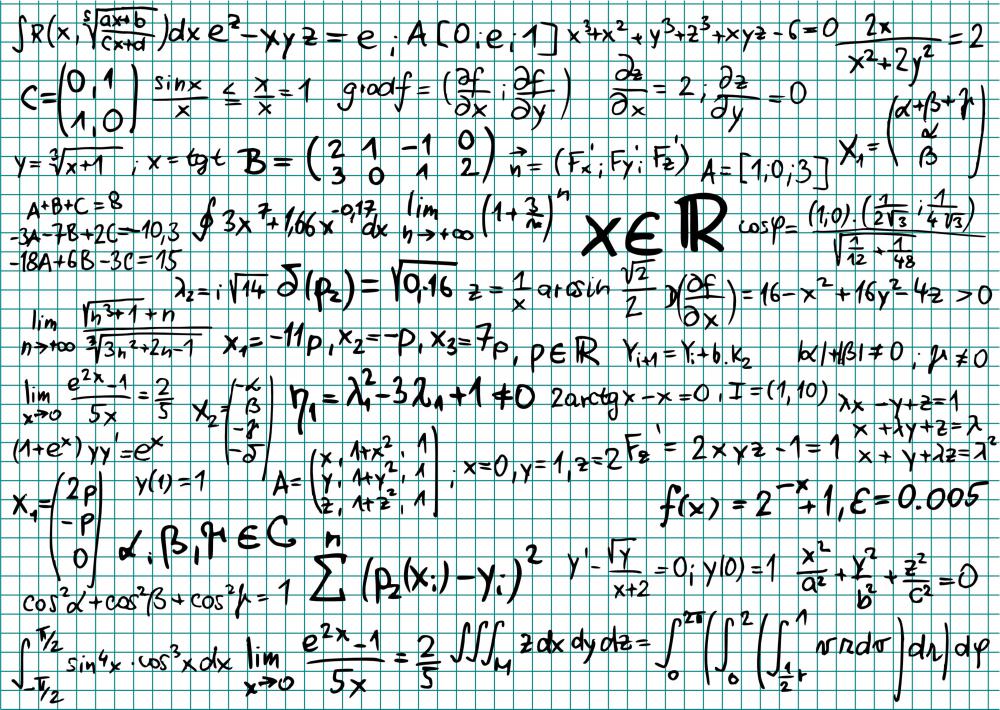 ∫R(x, ⁵√((ax+b)/(cx+d)))dx e^z - xyz = e ; A[0;e;1] x³+x²+y³+z³+xyz-6=0 2x/(x²+2y²) = 2
C = (0,1 / 1,0) sinx/x ≤ x/x = 1 gradf = (∂f/∂x ; ∂f/∂y) ∂z/∂x = 2 ; ∂z/∂y = 0
y = ³√(x+1) ; x = tgt B = (2 1 -1 0 / 3 0 1 2) n⃗ = (Fx'; Fy'; Fz') A = [1;0;3] X₁ = (α+β+γ / α / β)
A+B+C=8
-3A-7B+2C=-10,3
-18A+6B-3C=15
∮ 3x⁷+1,66x^(-0,17) dx lim n→+∞ (1+3/n)^n x∈ℝ cosφ = (1,0)·(1/(2√3) ; 1/(4√3)) / √(1/12 + 1/48)
λ₂ = i√14 δ(p₂) = √0,16 z = 1/x arcsin √2/2 D(∂f/∂x) = 16-x²+16y²-4z > 0
lim n→+∞ (√(n³+1)+n)/(³√(3n²+2n-1)) x₁ = -11p, x₂ = -p, x₃ = 7p, p∈ℝ Yᵢ₊₁ = Yᵢ+b.k₂ |α|+|β| ≠ 0 ; γ ≠ 0
lim x→0 (e^(2x)-1)/5x = 2/5 X₂ = (-α / β / -γ / -δ) η₁ = λ₁²-3λ₁+1 ≠ 0 2arctgx-x=0, I=(1,10)
λx-y+z=1
x+λy+z=λ
x+y+λz=λ²
(1+e^x)yy' = e^x
y(1)=1
A = (x, 1+x², 1 / y, 1+y², 1 / z, 1+z², 1) ; x=0, y=1, z=2 Fz' = 2xyz-1=1
X₁ = (2p / -p / 0) f(x) = 2^(-x)+1, ε=0.005
α, β, γ ∈ C
cos²α+cos²β+cos²γ=1 Σ^n (p₂(xᵢ)-yᵢ)² y' - √y/(x+2) = 0 ; y(0)=1 x²/a² + y²/b² + z²/c² = 0
∫_(-π/2)^(π/2) sin⁴x·cos³xdx lim x→0 (e^(2x)-1)/5x = 2/5 ∭_M zdxdydz = ∫₀^(2π) (∫₀² (∫_(½r)^1 vrdv)dr)dφ